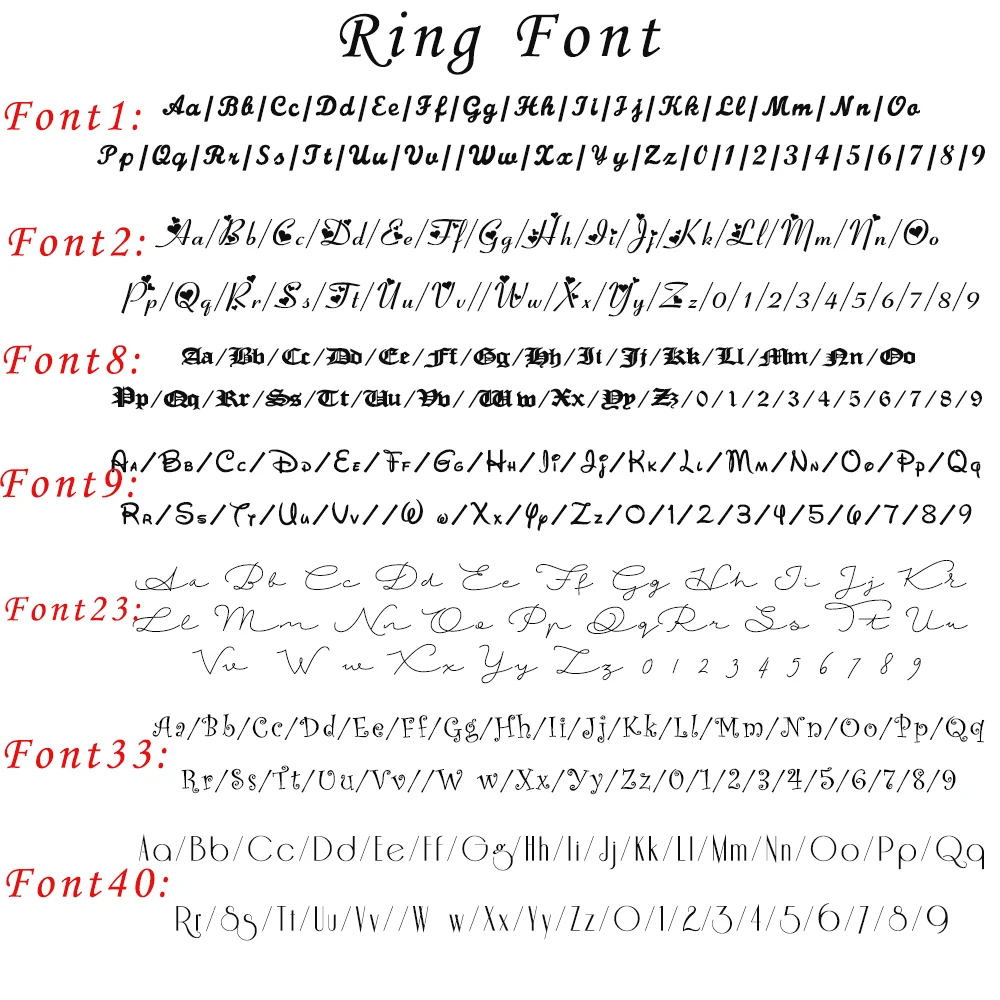 Ring Font
Font1: Aa|Bb|Cc|Dd|Ee|Ff|Gg|Hh|Ii|Jj|Kk|Ll|Mm|Nn|Oo
Pp|Qq|Rr|Ss|Tt|Uu|Vv||Ww|Xx|Yy|Zz|0|1|2|3|4|5|6|7|8|9
Font2: Aa/Bb/Cc/Dd/Ee/Ff/Gg/Hh/Ii/Jj/Kk/Ll/Mm/Nn/Oo
Pp/Qq/Rr/Ss/Tt/Uu/Vv//Ww/Xx/Yy/Zz/0/1/2/3/4/5/6/7/8/9
Font8: Aa/Bb/Cc/Dd/Ee/Ff/Gg/Hh/Ii/Jj/Kk/Ll/Mm/Nn/Oo
Pp/Qq/Rr/Ss/Tt/Uu/Vv//Ww/Xx/Yy/Zz/0/1/2/3/4/5/6/7/8/9
Font9: Aa/Bb/Cc/Dd/Ee/Ff/Gg/Hh/Ii/Jj/Kk/Ll/Mm/Nn/Oo/Pp/Qq
Rr/Ss/Tt/Uu/Vv//W w/Xx/Yy/Zz/0/1/2/3/4/5/6/7/8/9
Font23: Aa Bb Cc Dd Ee Ff Gg Hh Ii Jj Kr
Ll Mm Nn Oo Pp Qq Rr Ss Tt Uu
Vv W w Xx Yy Zz 0 1 2 3 4 5 6 7 8 9
Font33: Aa/Bb/Cc/Dd/Ee/Ff/Gg/Hh/Ii/Jj/Kk/Ll/Mm/Nn/Oo/Pp/Qq
Rr/Ss/Tt/Uu/Vv//W w/Xx/Yy/Zz/0/1/2/3/4/5/6/7/8/9
Font40: Aa/Bb/Cc/Dd/Ee/Ff/Gg/Hh/Ii/Jj/Kk/Ll/Mm/Nn/Oo/Pp/Qq
Rr/Ss/Tt/Uu/Vv//W w/Xx/Yy/Zz/0/1/2/3/4/5/6/7/8/9